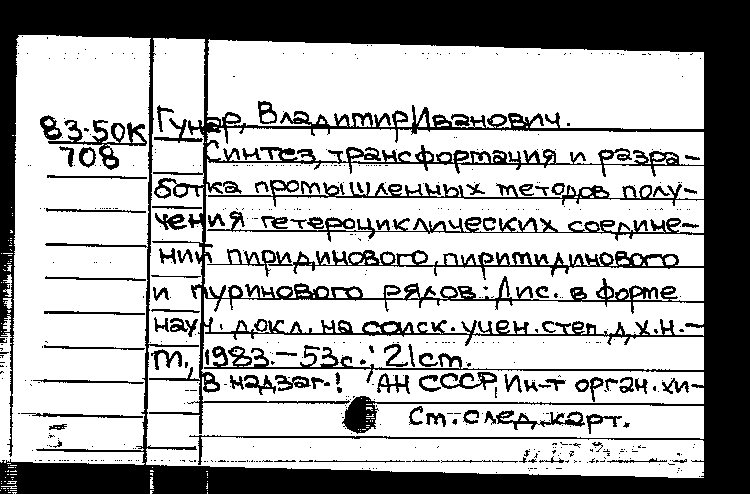 83-50К
708
Гунар, Владимир Иванович.
Синтез, трансформация и разра-
ботка промышленных методов полу-
чения гетероциклических соедине-
ний пиридинового, пиримидинового
и пуринового рядов: Дис. в форме
науч. докл. на соиск. учен. степ. д.х.н. -
М., 1983. - 53с.; 21см.
В надзаг.: АН СССР, Ин-т орган. хи-
См. след. карт.
5